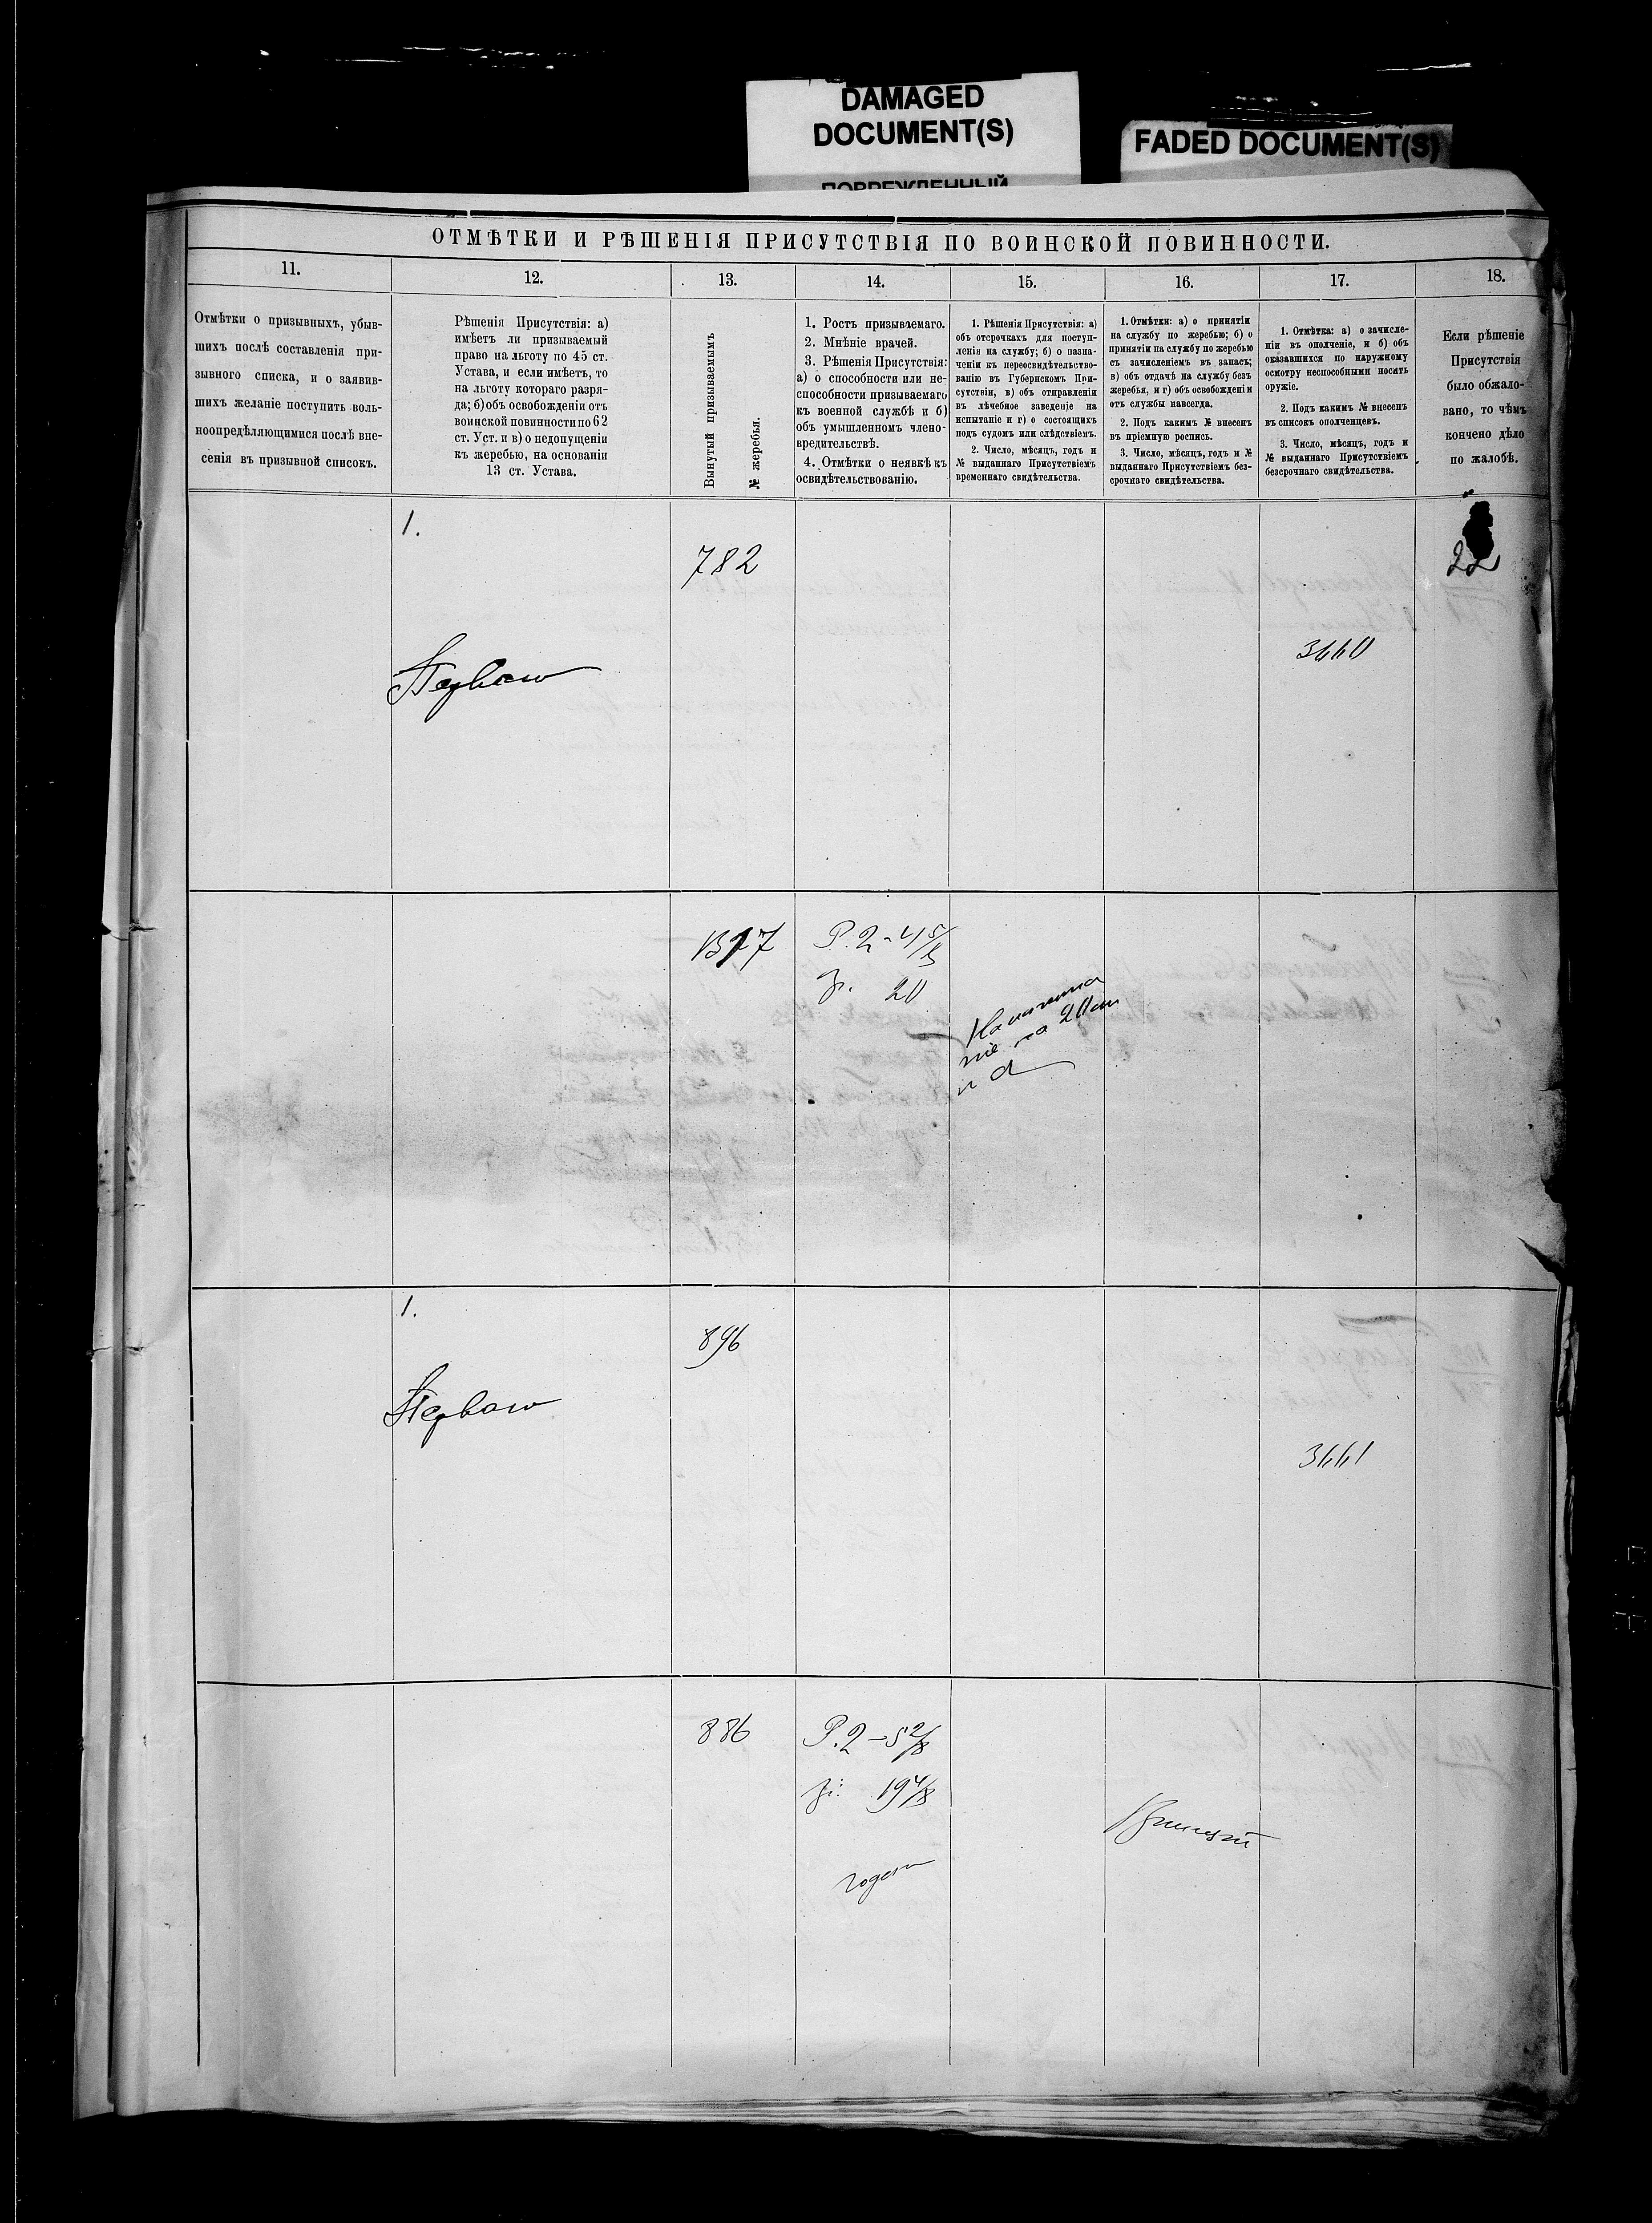 DAMAGED
DOCUMENT(S)
ПОВРЕЖДЕННЫЙ
FADED DOCUMENT(S)
ОТМѢТКИ И РѢШЕНІЯ ПРИСУТСТВІЯ ПО ВОИНСКОЙ ПОВИННОСТИ.
11.
Отмѣтки о призывныхъ, убыв-
шихъ послѣ составленія при-
зывного списка, и о заявив-
шихъ желаніе поступить воль-
ноопредѣляющимися послѣ вне-
сенія въ призывной списокъ.
12.
Рѣшенія Присутствія: а)
имѣетъ ли призываемый
право на льготу по 45 ст.
Устава, и если имѣетъ, то
на льготу котораго разря-
да; б) объ освобожденіи отъ
воинской повинности по 62
ст. Уст. и в) о недопущеніи
къ жеребью, на основаніи
13 ст. Устава.
13.
Вынутый призываемымъ
№ жеребья.
14.
1. Ростъ призываемаго.
2. Мнѣніе врачей.
3. Рѣшенія Присутствія:
а) о способности или не-
способности призываемаго
къ военной службѣ и б)
объ умышленномъ члено-
вредительствѣ.
4. Отмѣтки о неявкѣ къ
освидѣтельствованію.
15.
1. Рѣшенія Присутствія: а)
объ отсрочкахъ для поступ-
ленія на службу; б) о назна-
ченіи къ переосвидѣтельство-
ванію въ Губернскомъ При-
сутствіи, в) объ отправленіи
въ лѣчебное заведеніе на
испытаніе и г) о состоящихъ
подъ судомъ или слѣдствіемъ.
2. Число, мѣсяцъ, годъ и
№ выданнаго Присутствіемъ
временнаго свидѣтельства.
16.
1. Отмѣтки: а) о принятіи
на службу по жеребью; б) о
принятіи на службу по жеребью
съ зачисленіемъ въ запасъ;
в) объ отдачѣ на службу безъ
жеребья, и г) объ освобожденіи
отъ службы навсегда.
2. Подъ какимъ № внесенъ
въ пріемную роспись.
3. Число, мѣсяцъ, годъ и №
выданнаго Присутствіемъ без-
срочнаго свидѣтельства.
17.
1. Отмѣтка: а) о зачисле-
ніи въ ополченіе, и б) объ
оказавшихся по наружному
осмотру неспособными носить
оружіе.
2. Подъ какимъ № внесенъ
въ списокъ ополченцевъ.
3. Число, мѣсяцъ, годъ и
№ выданнаго Присутствіемъ
безсрочнаго свидѣтельства.
18.
Если рѣшеніе
Присутствія
было обжало-
вано, то чѣмъ
кончено дѣло
по жалобѣ.
1.
782
22
3660
Перваго
1317
Р. 2-4 5/8
20
1.
896
Перваго
3661
886
Р. 2-5 2/8
19 4/8
годенъ
Принятъ